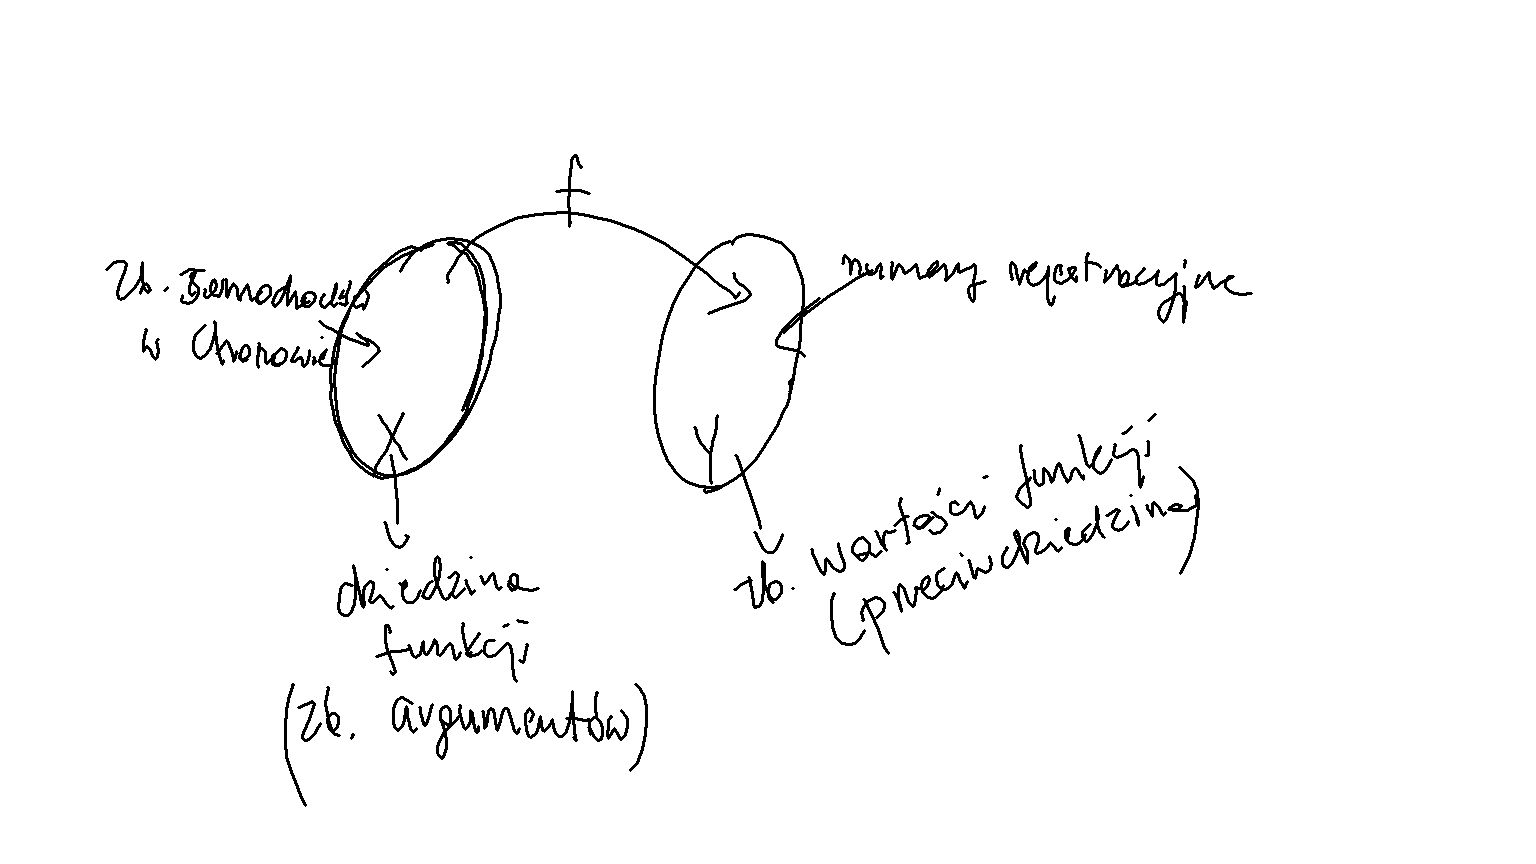 f
zb. Samochodów
w Chorzowie
numery rejestracyjne
X
Y
dziedzina
funkcji
(zb. argumentów)
zb. wartości funkcji
(przeciwdziedzina)